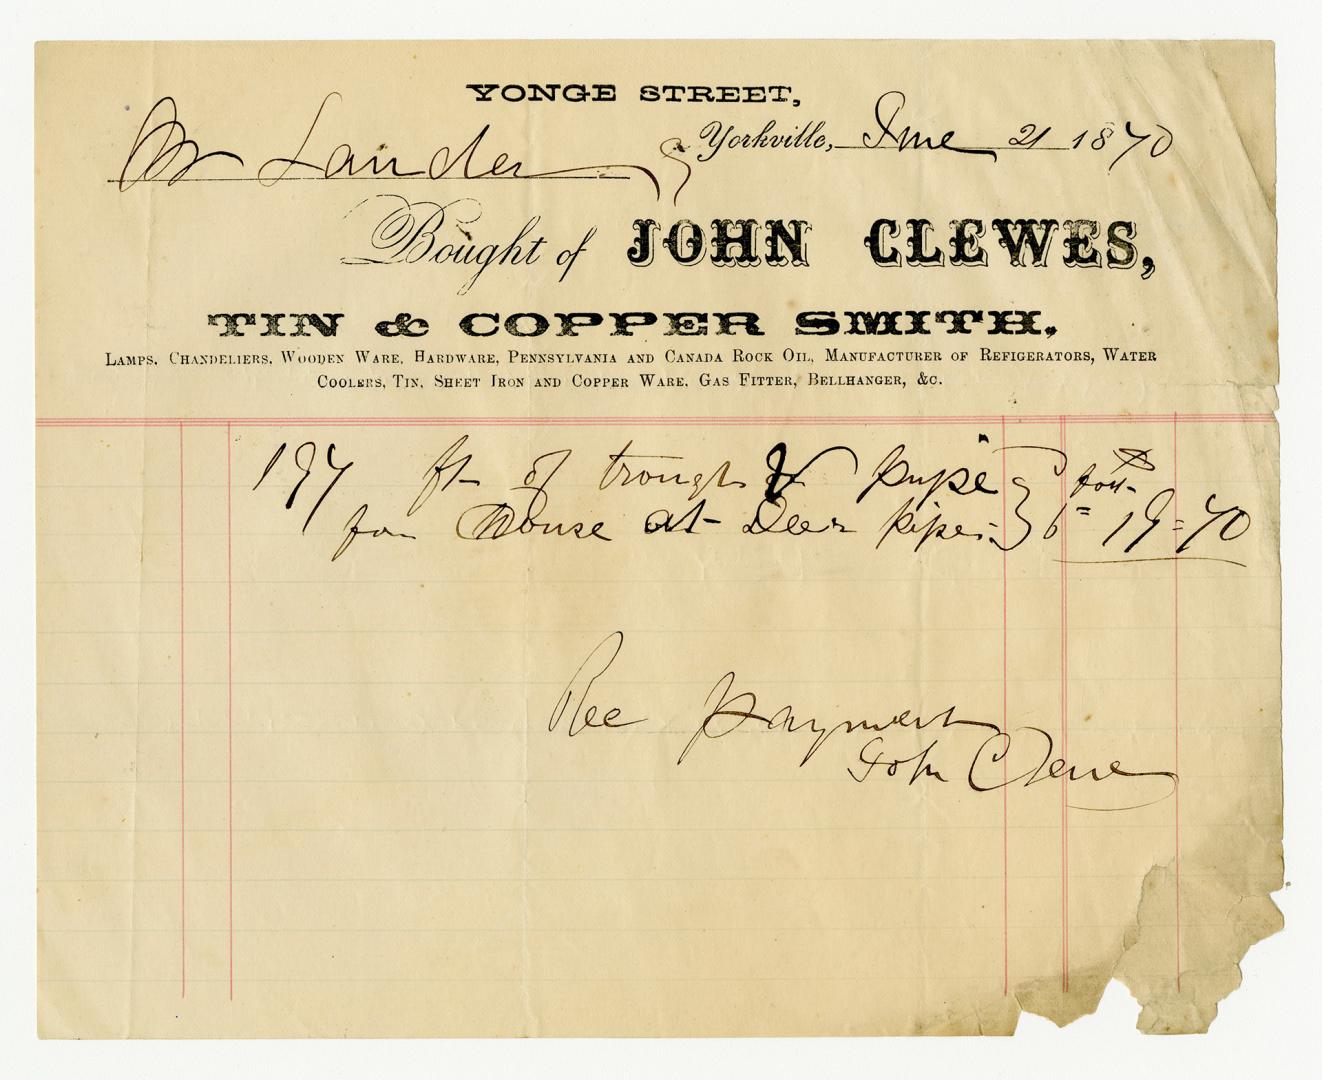 YONGE STREET,
Yorkville, June 21 1870
Mr Lauder
Bought of JOHN CLEWES,
TIN & COPPER SMITH.
LAMPS, CHANDELIERS, WOODEN WARE, HARDWARE, PENNSYLVANIA AND CANADA ROCK OIL, MANUFACTURER OF REFIGERATORS, WATER
COOLERS, TIN, SHEET IRON AND COPPER WARE, GAS FITTER, BELLHANGER, &C.
197 ft of trough & pipe
for House at Deer pipe 19=70
Rec payment
John Clewe